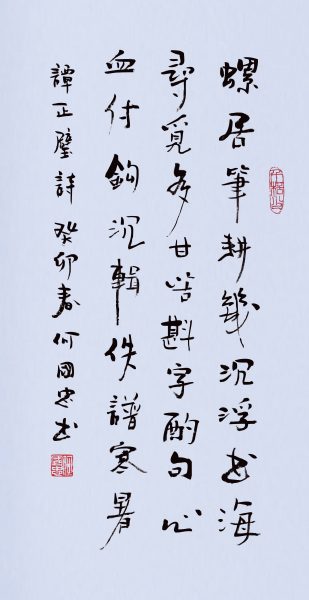 螺居筆耕幾沉浮書海
尋覓多甘苦斟字酌句心
血付鈎沉輯佚譜寒暑
譚正璧詩 癸卯春何國忠書